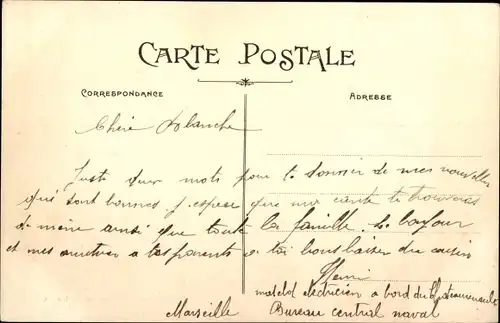 CARTE POSTALE
CORRESPONDANCE
ADRESSE
Chère Blanche
Juste quer mots pour te donner de mes nouvelles
qui sont bonnes j. espere que ma carte te trouveras
de même ainsi que toute la famille. bonjour
et mes amities a tes parents a toi bons baiser du cousin
Henri
matelot electricien a bord du
Marseille Bureau central naval